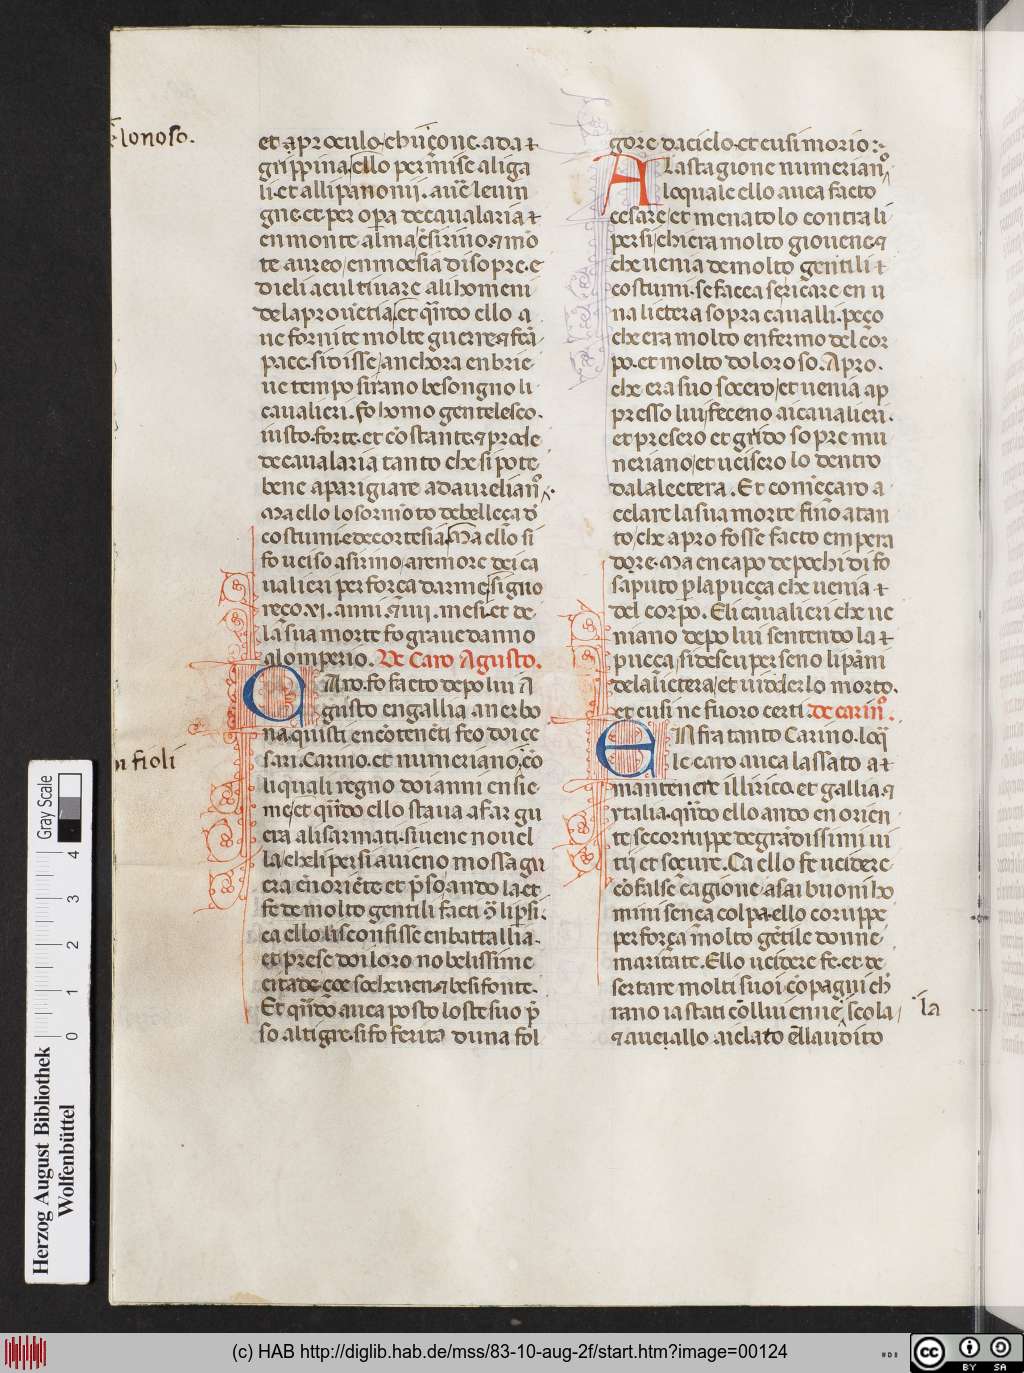 lonoso.
et aproculo. chi iconc. ada ⁊
grippina, ello permise a li ga
li. et alli panonii. auē le uin
gne. et per opa de cqualaria ⁊
en monte alma, e sirino. ⁊ mō
te aureo, en mœsia di sopre. e
dieli a cultiuare ali homeni
de la prouētia, et qn̄do ello a
ue fornite molte guerre, ⁊ fcā
pace. si disse, anchora en brie
ue tempo sirano besongno li
caualieri. fo homo gentelesco.
iusto. forte. et cōstante. ⁊ prode
de caualaria tanto che si pote
bene aparigiare ad aurelianº.
Ma ello lo sormōto de belleça d̄
costumi. e de cortesia, Ma ello si
fo uciso a sirmo, a remore dei ca
ualieri per força darme, si gno
reço xi. anni. ⁊ iiii. mesi. et de
la sua morte fo graue danno
alomperio. De Caro Agusto.
CAro. fo facto depo lui A
gusto en gallia a nerbo
na. quisti encōtenēti feo doi ce
sari. Carino. et numeriano, cō
li quali regno doi anni ensie
me, et qn̄do ello staua a far gu
era ali sarmati. si uene nouel
la, che li persi aueno mossa gu
era en oriēte et p̄so, ando la. et
fe de molto gentili facti ↄ̄ li psi.
ca ello li sconfisse en battallia.
et prese doi loro nobelissime
citade. coe soche uen. ⁊ besifonte.
Et qn̄do auea posto loste suo p̄
so al tigre. si fo ferito duna fol
n fioli
gore da cielo. et cusi morio:
A la stagione numerianº
lo quale ello auea facto
cesare, et menatolo contra li
persi, chi era molto giouene. ⁊
che uenia de molto gentili ⁊
costumi. se facea sericare en u
na lictera sopra caualli. peço
che era molto enfermo del cor
po. et molto doloroso. Apro.
che era suo socero, et uenia ap
presso lui, feceno ai caualieri.
et presero et grido sopre nu
neriano, et ucisero lo dentro
da la lectera. Et comēçaro a
celare la sua morte fino a tan
to, che apro fosse facto empera
dore. Ma encapo de pochi di fo
saputo p la puçça che uenia ⁊
del corpo. Eli caualieri che ue
niano depo lui sentendo la ⁊
puçça, si descuperseno li pāni
de la lictera, et uiderlo morto.
et cusi ne fuoro certi. de carinº.
EN fra tanto Carino. loq̄
le caro auea lassato a ⁊
mantenere illirico. et gallia. ⁊
ytalia. qn̄do ello ando en orien
te, se corruppe de grādissimi ui
tii et soçure. Ca ello fe ucidere
cō false cagione, asai buoni ho
mini sença colpa. ello coruppe
per força molto gētile donne
maritate. Ello ucidere fe. et de
sertare molti suoi cōpagni ch̄
rano ia stati cō llui en ne, scola
⁊ auei allo aiclato e llaudito
la
Herzog August Bibliothek
Wolfenbüttel
Gray Scale
0 1 2 3 4
(c) HAB http://diglib.hab.de/mss/83-10-aug-2f/start.htm?image=00124
cc BY SA